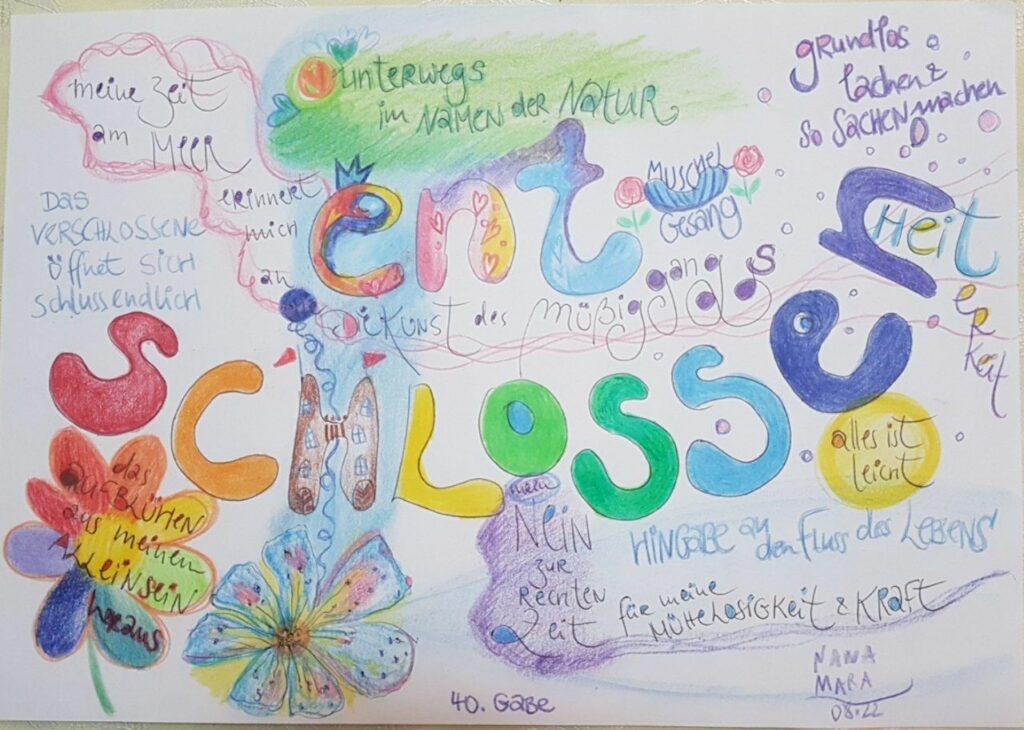 meine Zeit
am MEER
erinnert
mich
an
unterwegs
im NAMEN der NATUR
grundlos
lachen &
so SACHEN machen
DAS
VERSCHLOSSENE
öffnet SICH
schlussendlich
ent
MUSCHEL
Gesang
DiE KUNST des müßiggangs
SCHLOSSEN
HEiT
alles ist
leicht
das
AUFBLÜHEN
aus meinem
AlleinSein
heraus
mein
NEIN
zur
Rechten
Zeit
HINGABE an
den Fluss des LEBENS
für meine
MÜHELOSIGKEIT & KRAFT
NANA
MARA
08.22
40. GABE